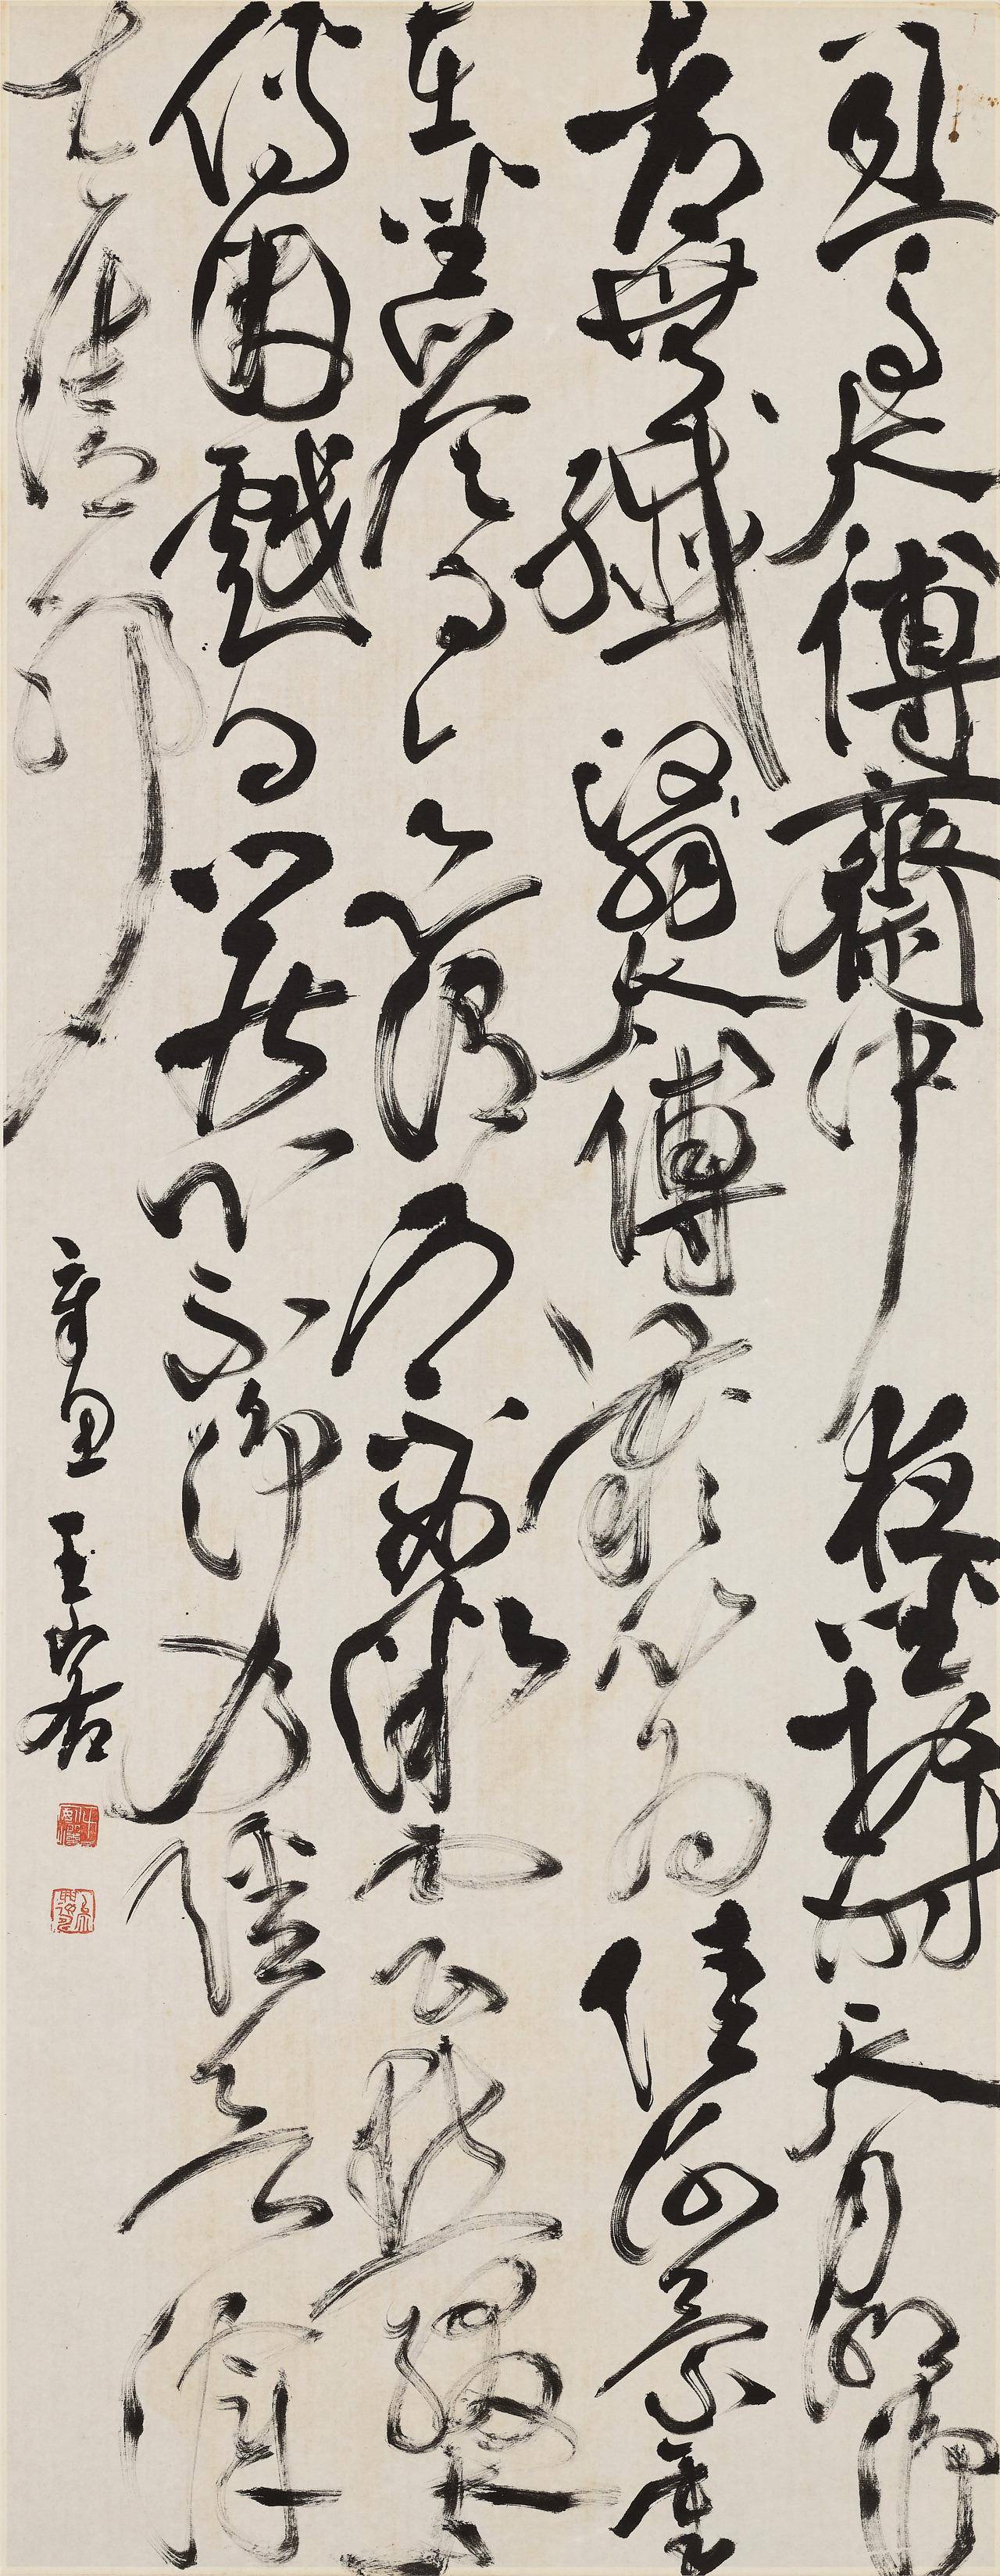 司馬太傅齋中夜坐於時天月明淨
都無纖翳太傅歎以為佳謝景重
在坐答曰意謂乃不如微雲點綴太
傅因戲曰卿居心不淨乃強欲滓
清邪
王